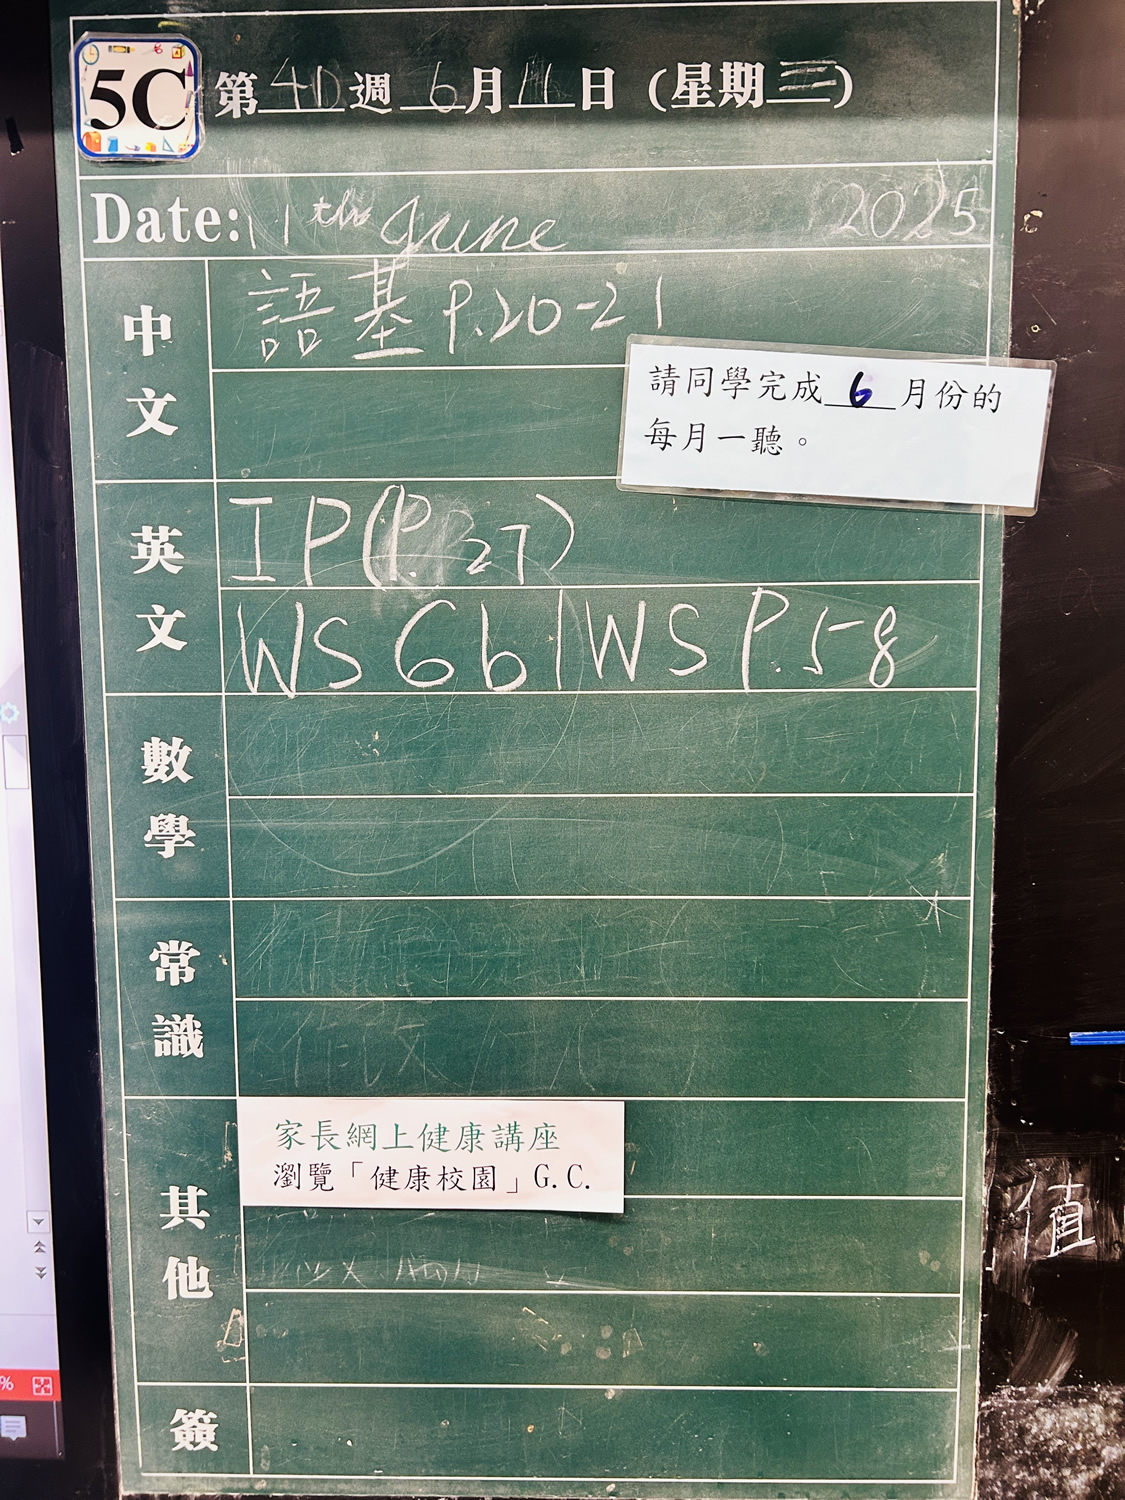 5C 第40週 6月11日 (星期三)
Date: 11th June 2025
中文
語基 P.20-21
請同學完成 6 月份的
每月一聽。
英文
IP (P.27)
WS 6b | WS P.58
數學
常識
其他
家長網上健康講座
瀏覽「健康校園」G.C.
簽
值
%